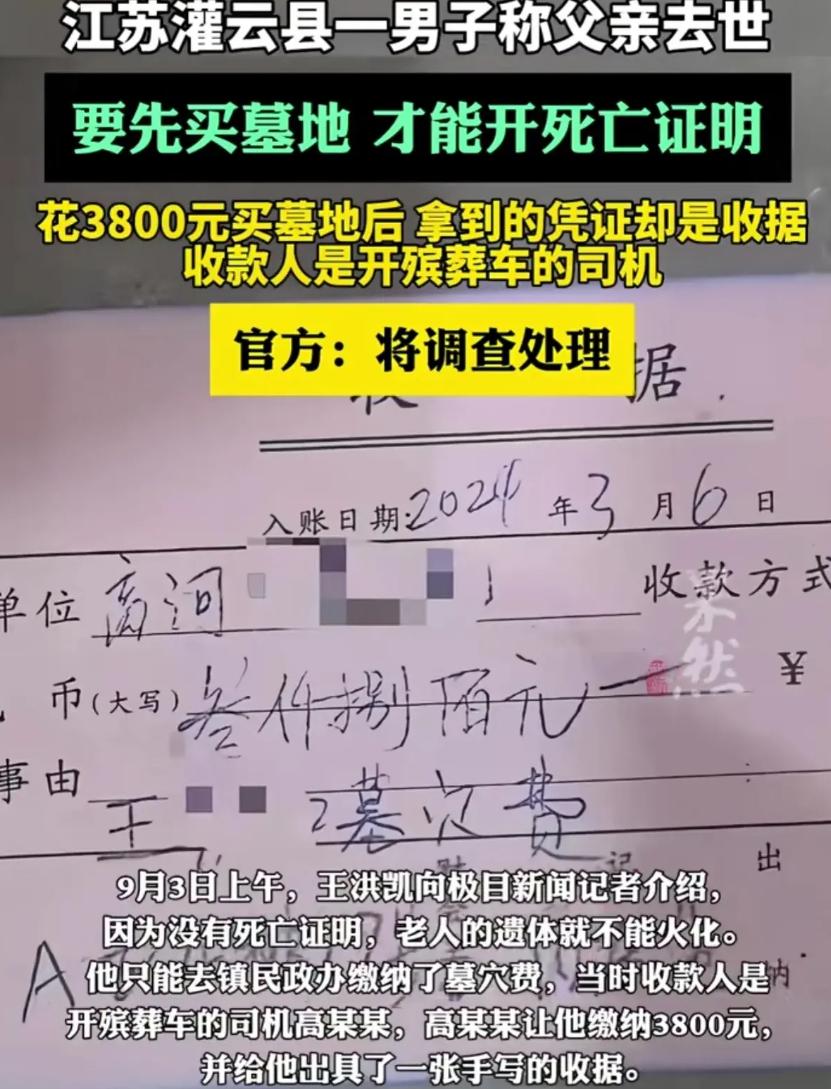 江苏灌云县一男子称父亲去世
要先买墓地 才能开死亡证明
花3800元买墓地后 拿到的凭证却是收据
收款人是开殡葬车的司机
官方：将调查处理
收 据
入账日期:2024年3月6日
单位 收款方式
币(大写)叁仟捌佰元 ¥
事由 王 墓穴费
果然
出
9月3日上午，王洪凯向极目新闻记者介绍，
因为没有死亡证明，老人的遗体就不能火化。
他只能去镇民政办缴纳了墓穴费，当时收款人是
开殡葬车的司机高某某，高某某让他缴纳3800元，
并给他出具了一张手写的收据。
纳